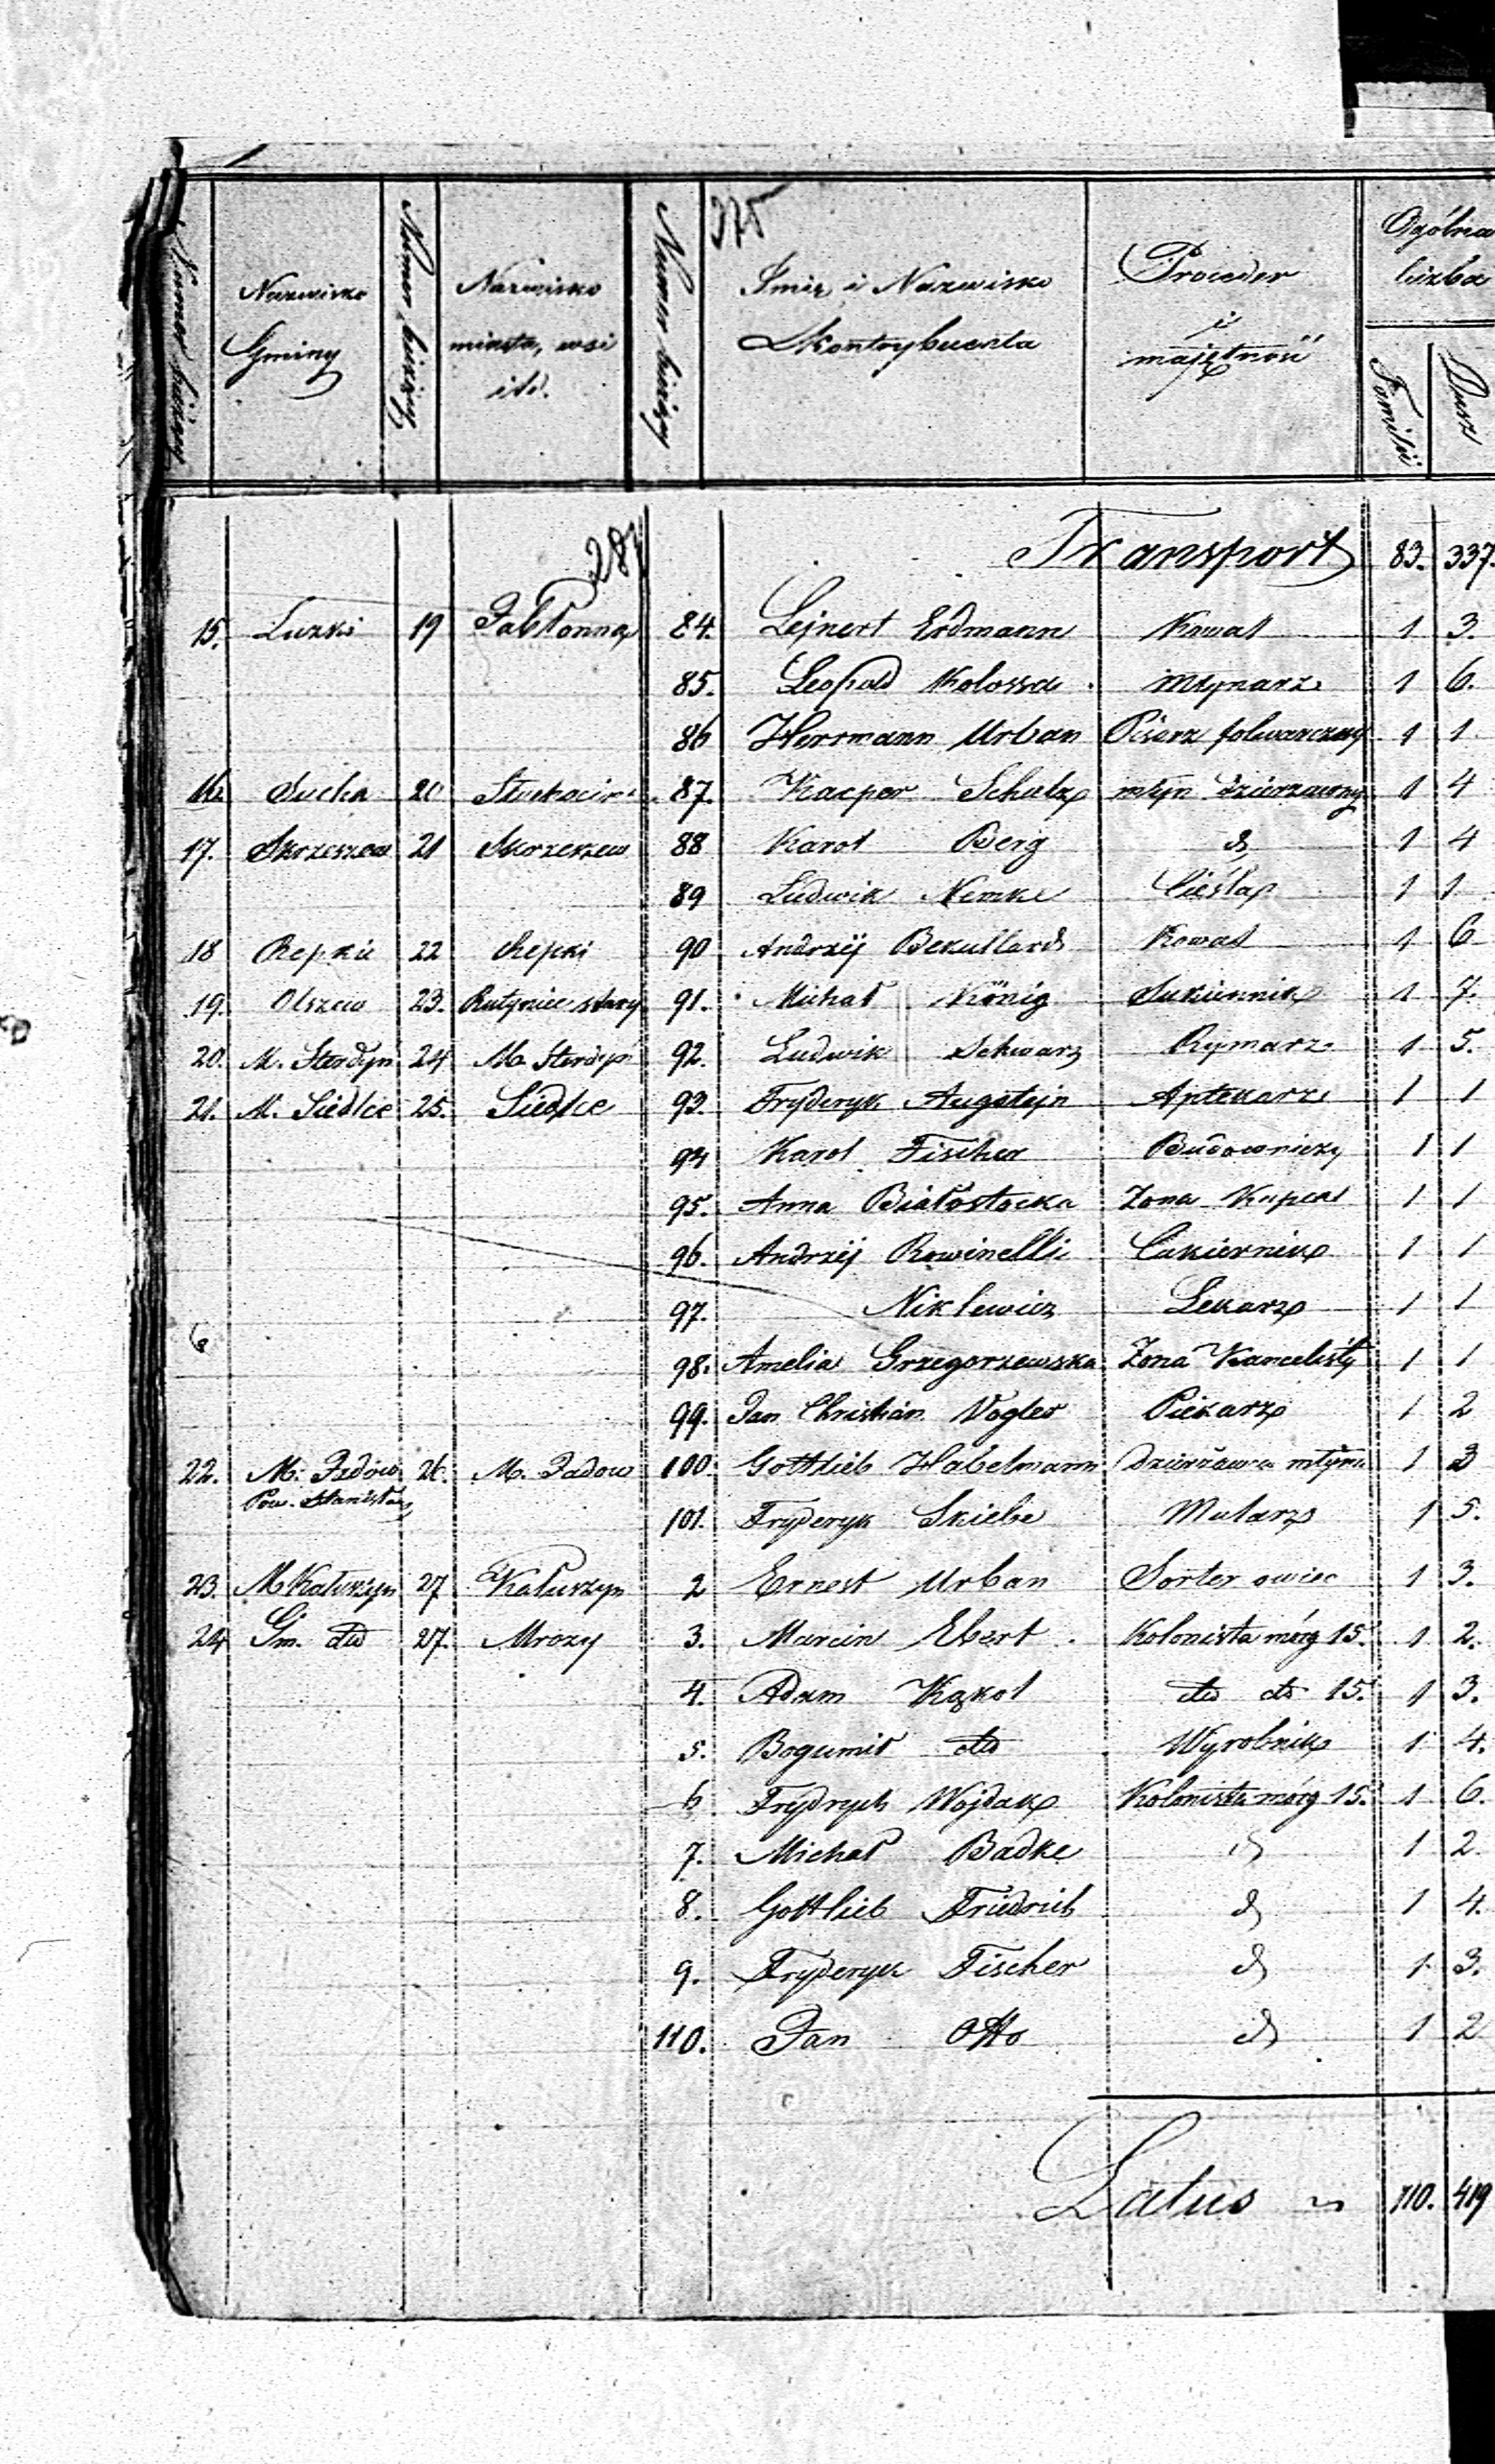 375
Numer bieżący | Nazwisko Gminy | Numer bieżący | Nazwisko miasta, wsi itd. | Numer bieżący | Imie i Nazwisko Kontrybuenta | Proceder i majętność | Ogólna liczba | Familii | Dusz
287
Transport 83. 337.
15. Luzki 19 Jabłonna 84. Lejnert Erdmann Kowal 1 3.
85. Leopold Kolossa Młynarz 1 6.
86 Herrmann Urban Pisarz folwarczny 1 1
16. Sucha 20 87. Kacper Schulz młyn dzierzawny 1 4
17. Skrzeszew 21 Skrzeszew 88 Karol Berg d 1 4
89 Ludwik Nemke Cieśla 1 1
18 Repki 22 Repki 90 Andrzij Bekullard Kowal 1 6
19. Olszew 23. Rutyniec stary 91. Michał König Sukiennik 1 7.
20. M. Sterdyń 24 M. Sterdyń 92. Ludwik Schwarz Rymarz 1 5.
21. M. Siedlce 25. Siedlce 93. Fryderyk Augstejn Aptekarz 1 1
94 Karol Fischer Budowniczy 1 1
95. Anna Białostocka Zona Kupca 1 1
96. Andrzij Rowinelli Cukiernik 1 1
97. Niklewicz Lekarz 1 1
98. Amelia Grzegorzewska Zona Kancelisty 1 1
99. Jan Christian Vogler Piekarz 1 2
22. M. Jadow 26. M. Jadow 100 Gottlieb Habelmann Dzierżawca młyna 1 3
Pow. Stanisław
101. Fryderyk Skiebe Mularz 1 5.
23. M Kałuszyn 27 Kałuszyn 2 Ernest Urban Sorter owiec 1 3.
24 Gm. dto 27. Mrozy 3. Marcin Ebert Kolonista mórg 15. 1 2.
4. Adam Kąkol dto dto 15. 1 3.
5. Bogumił dto Wyrobnik 1 4.
6 Frydrych Wojdak Kolonista mórg 15. 1 6.
7. Michał Badke d 1 2
8. Gottlieb Friedrich d 1 4.
9. Fryderyk Fischer d 1 3.
110. Jan Otto d 1 2
Latus 110. 419